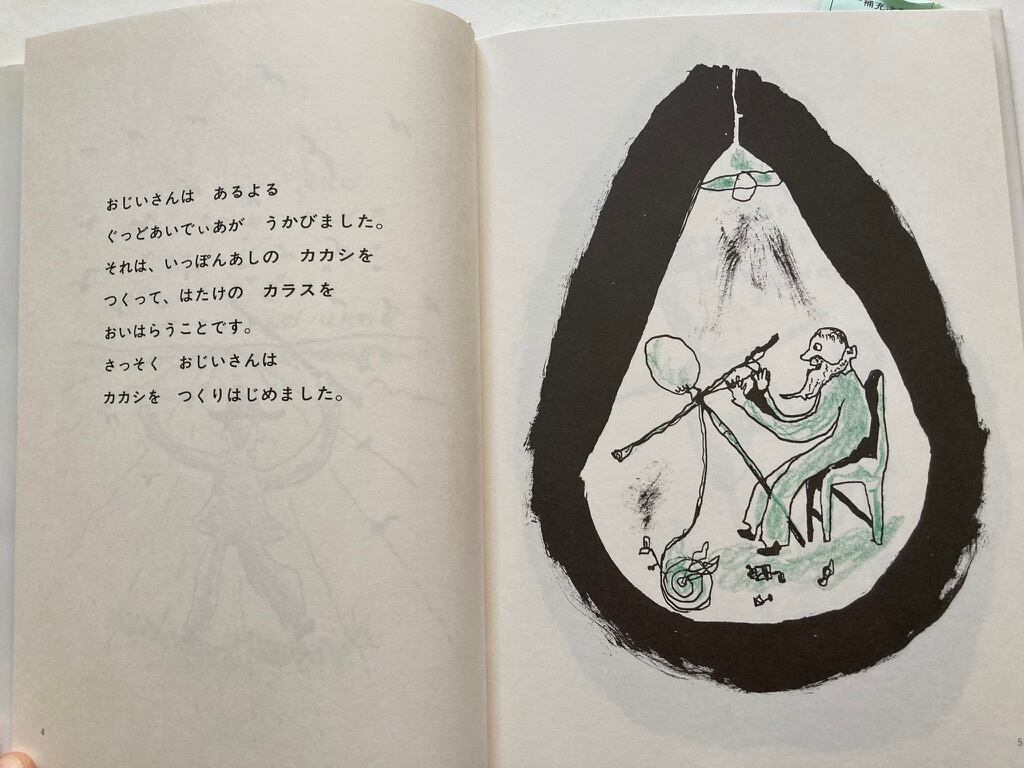 おじいさんは　あるよる
ぐっどあいでぃあが　うかびました。
それは、いっぽんあしの　カカシを
つくって、はたけの　カラスを
おいはらうことです。
さっそく　おじいさんは
カカシを　つくりはじめました。
4
5
補充